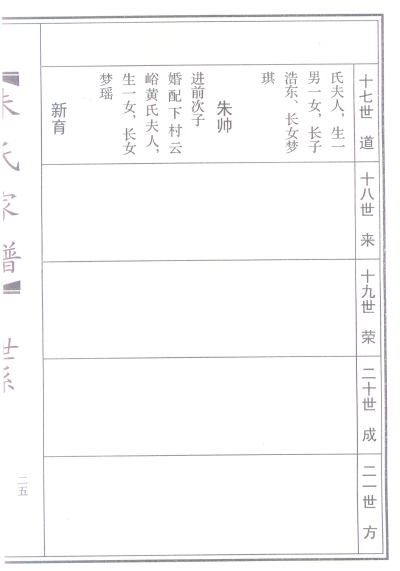 十七世 道
氏夫人，生一
男一女，长子
浩东、长女梦
琪
朱帅
进前次子
婚配下村云
峪黄氏夫人，
生一女，长女
梦瑶
新育
十八世 来
十九世 荣
二十世 成
二一世 方
朱氏家谱
世系
二五